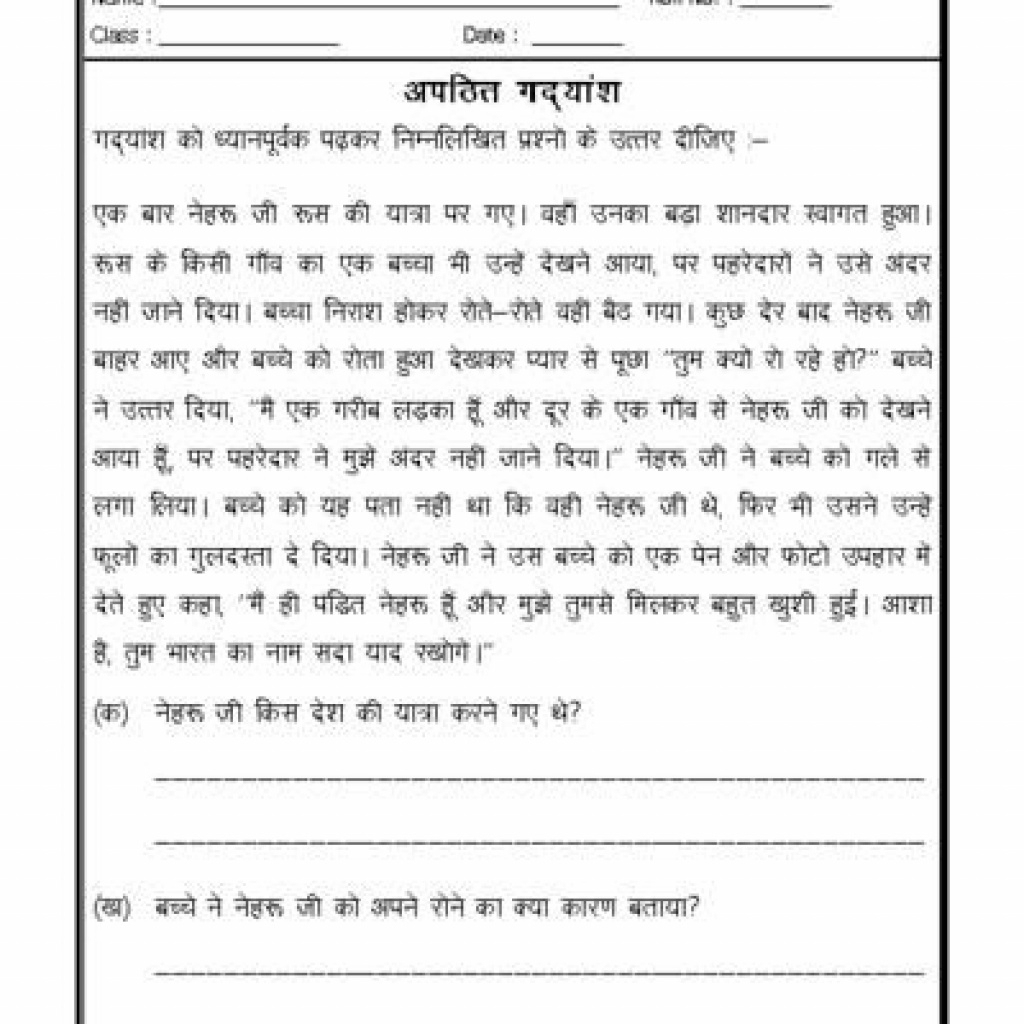 Class : ____________ Date : ______
अपठित गद्यांश
गद्यांश को ध्यानपूर्वक पढ़कर निम्नलिखित प्रश्नों के उत्तर दीजिए :–
एक बार नेहरू जी रूस की यात्रा पर गए। वहाँ उनका बड़ा शानदार स्वागत हुआ।
रूस के किसी गाँव का एक बच्चा भी उन्हें देखने आया, पर पहरेदारों ने उसे अंदर
नहीं जाने दिया। बच्चा निराश होकर रोते–रोते वहीं बैठ गया। कुछ देर बाद नेहरू जी
बाहर आए और बच्चे को रोता हुआ देखकर प्यार से पूछा “तुम क्यों रो रहे हो?” बच्चे
ने उत्तर दिया, “मैं एक गरीब लड़का हूँ और दूर के एक गाँव से नेहरू जी को देखने
आया हूँ, पर पहरेदार ने मुझे अंदर नहीं जाने दिया।” नेहरू जी ने बच्चे को गले से
लगा लिया। बच्चे को यह पता नहीं था कि वही नेहरू जी थे, फिर भी उसने उन्हें
फूलों का गुलदस्ता दे दिया। नेहरू जी ने उस बच्चे को एक पेन और फोटो उपहार में
देते हुए कहा, “मैं ही पंडित नेहरू हूँ और मुझे तुमसे मिलकर बहुत खुशी हुई। आशा
है, तुम भारत का नाम सदा याद रखोगे।”
(क) नेहरू जी किस देश की यात्रा करने गए थे?
(ख) बच्चे ने नेहरू जी को अपने रोने का क्या कारण बताया?